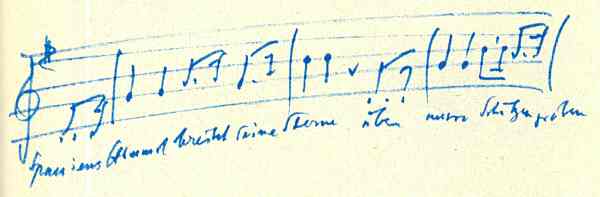 Spaniens Himmel breitet seine Sterne über unsre Schützengräben